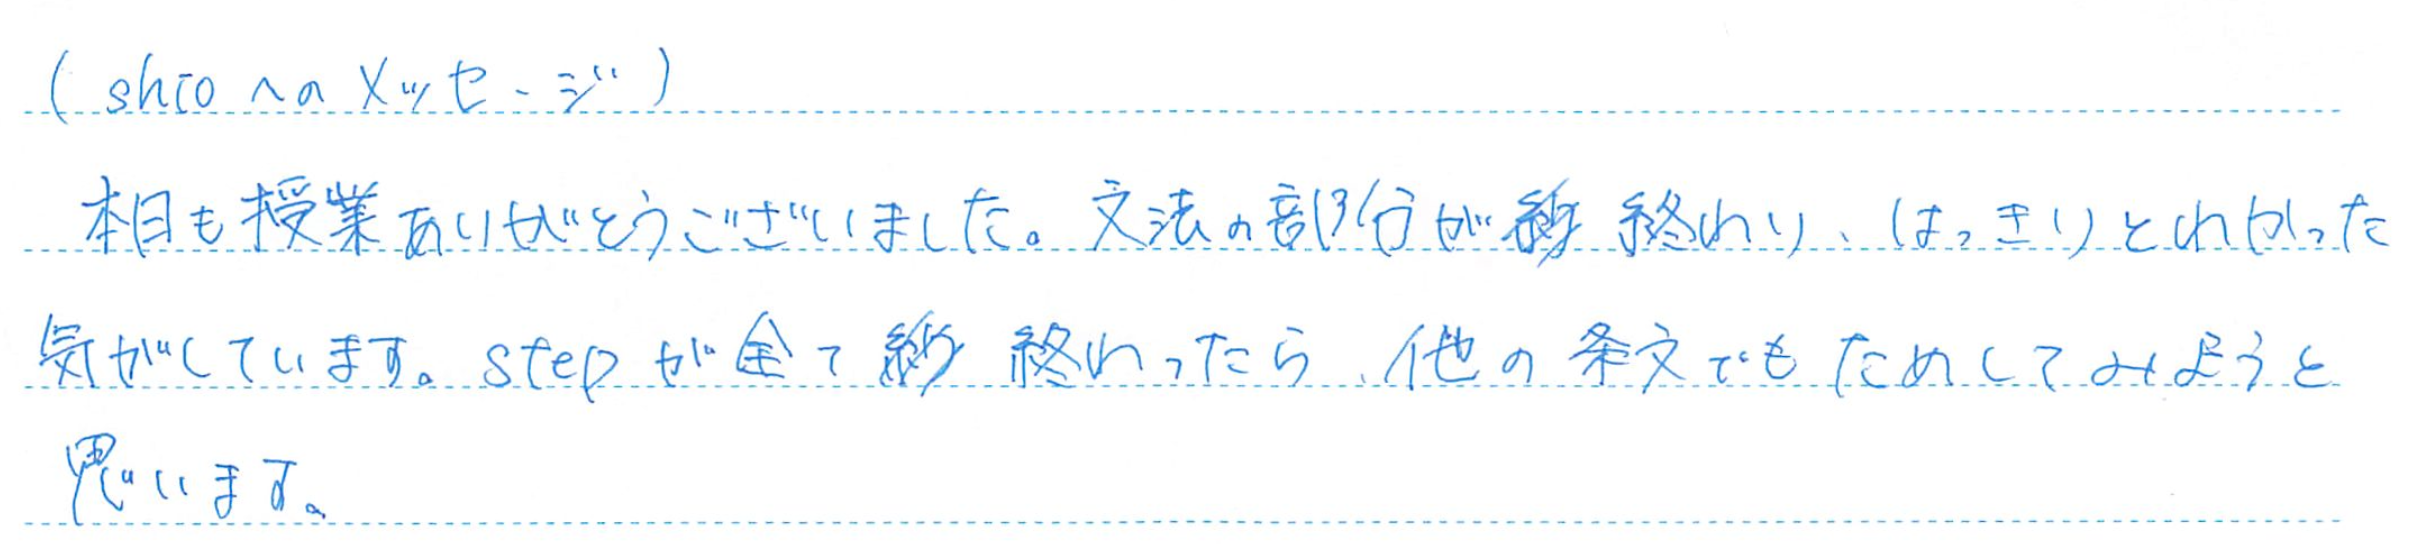 (shioへのメッセージ)
本日も授業ありがとうございました。文法の部分が終わり、はっきりとわかった
気がしています。stepが全て終わったら、他の条文でもためしてみようと
思います。